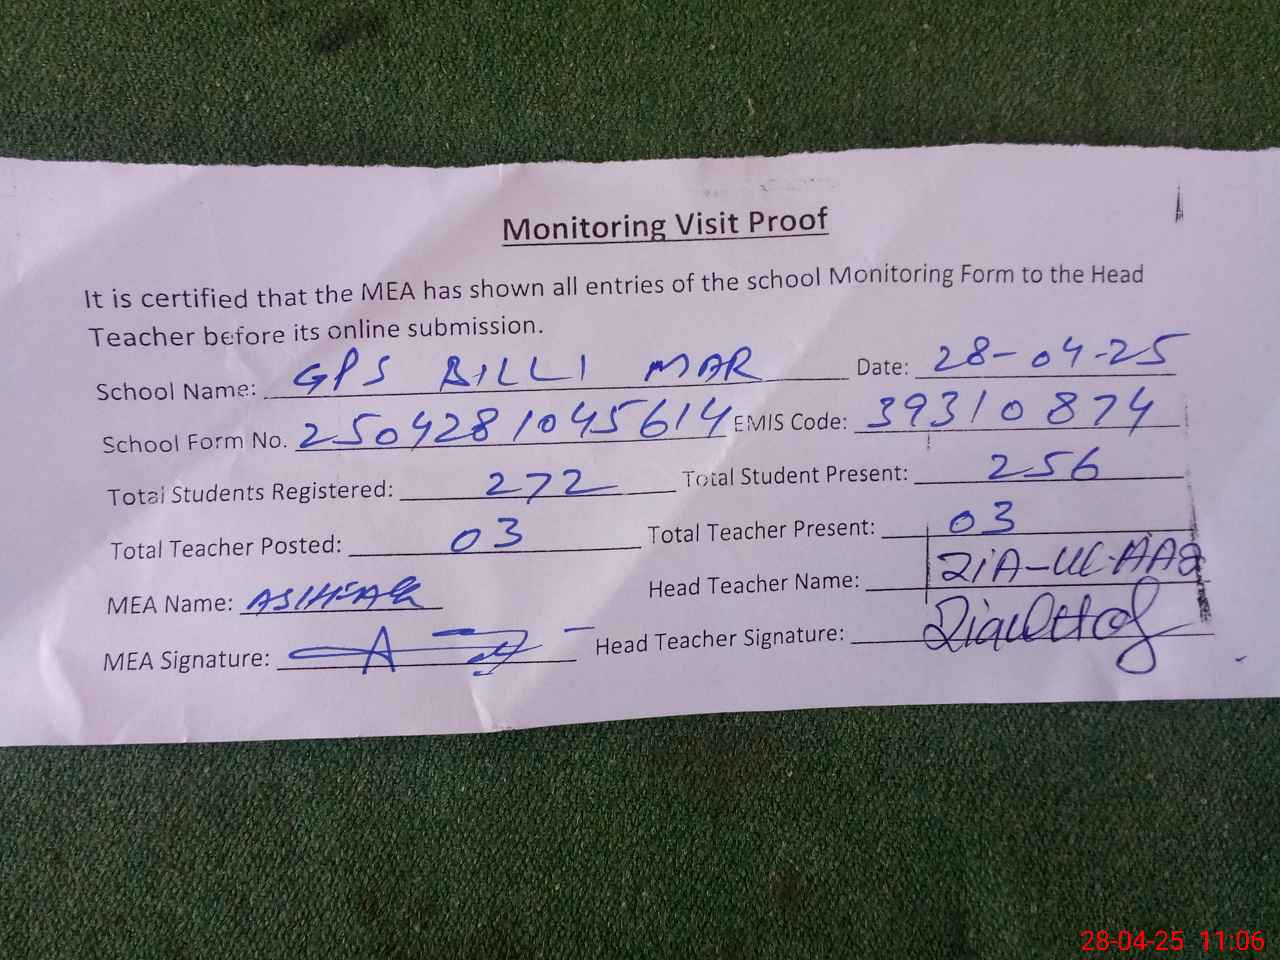 Monitoring Visit Proof
It is certified that the MEA has shown all entries of the school Monitoring Form to the Head
Teacher before its online submission.
School Name: GPS BILLI MAR Date: 28-04-25
School Form No. 2504281045614 EMIS Code: 39310874
Total Students Registered: 272 Total Student Present: 256
Total Teacher Posted: 03 Total Teacher Present: 03
MEA Name: Head Teacher Name: ZIA-UL-HAQ
MEA Signature: Head Teacher Signature:
28-04-25 11:06